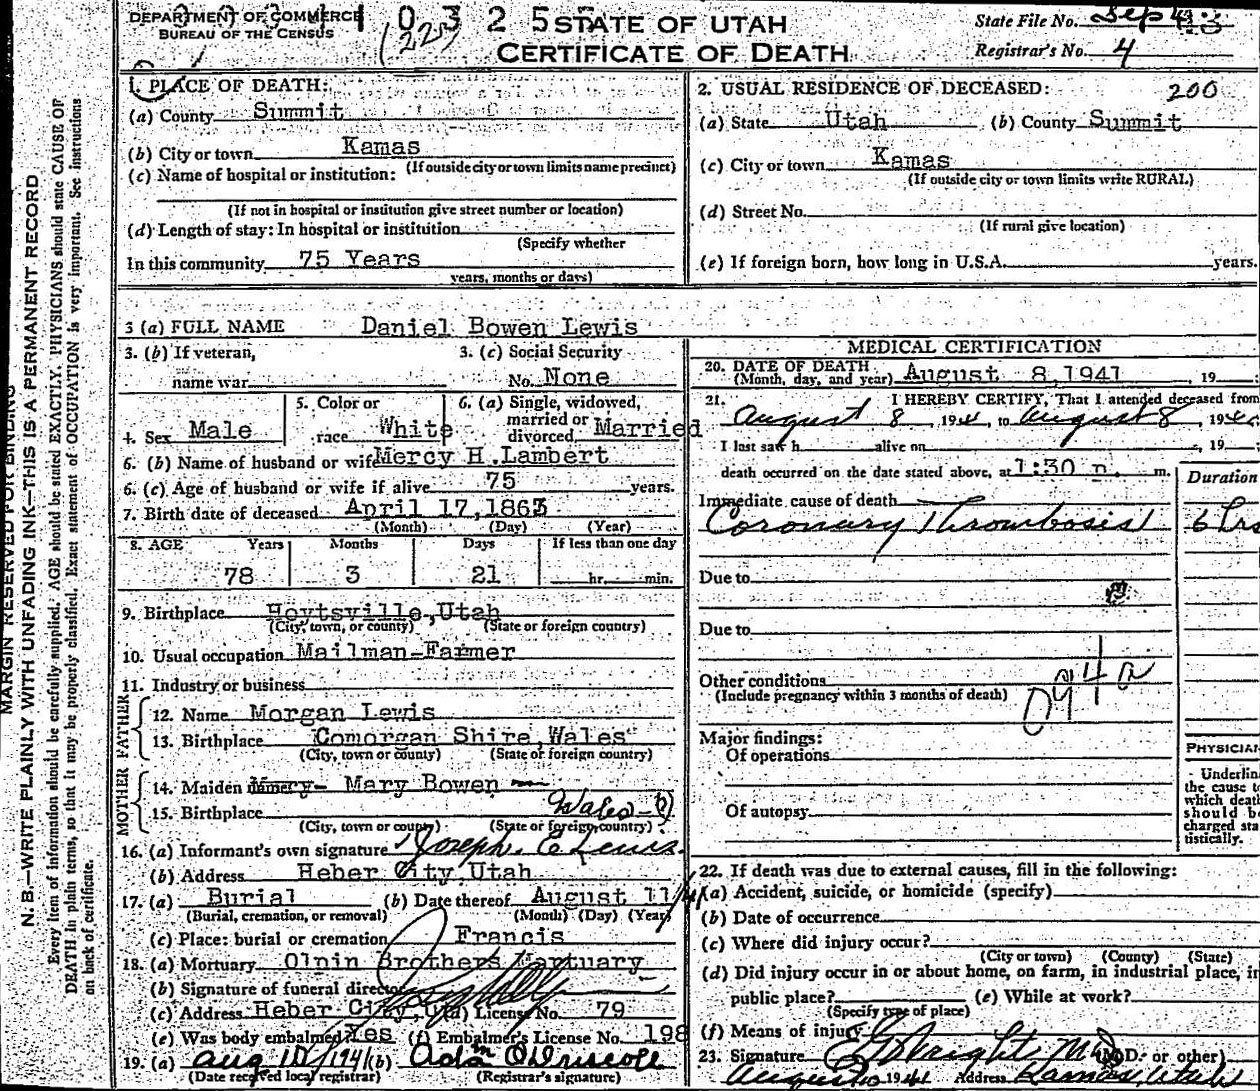 DEPARTMENT OF COMMERCE
BUREAU OF THE CENSUS
1 0 3 2 5
(223
STATE OF UTAH
CERTIFICATE OF DEATH
State File No. Sep
Registrar's No. 4
MARGIN RESERVED FOR BINDING
N. B.—WRITE PLAINLY WITH UNFADING INK—THIS IS A PERMANENT RECORD
Every item of information should be carefully supplied. AGE should be stated EXACTLY. PHYSICIANS should state CAUSE OF
DEATH in plain terms, so that it may be properly classified. Exact statement of OCCUPATION is very important. See instructions
on back of certificate.
1. PLACE OF DEATH:
(a) County Summit
(b) City or town Kamas
(If outside city or town limits name precinct)
(c) Name of hospital or institution:
(If not in hospital or institution give street number or location)
(d) Length of stay: In hospital or institution
(Specify whether
In this community 75 Years
years, months or days)
2. USUAL RESIDENCE OF DECEASED: 200
(a) State Utah (b) County Summit
(c) City or town Kamas
(If outside city or town limits write RURAL)
(d) Street No.
(If rural give location)
(e) If foreign born, how long in U.S.A. years.
3 (a) FULL NAME Daniel Bowen Lewis
3. (b) If veteran,
name war
3. (c) Social Security
No. None
4. Sex Male
5. Color or
race White
6. (a) Single, widowed,
married or
divorced Married
6. (b) Name of husband or wife Mercy H. Lambert
6. (c) Age of husband or wife if alive 75 years.
7. Birth date of deceased April 17, 1863
(Month) (Day) (Year)
8. AGE Years Months Days If less than one day
78 3 21 hr. min.
9. Birthplace Hoytsville, Utah
(City, town, or county) (State or foreign country)
10. Usual occupation Mailman-Farmer
11. Industry or business
FATHER
12. Name Morgan Lewis
13. Birthplace Comorgan Shire Wales
(City, town or county) (State or foreign country)
MOTHER
14. Maiden name Mary Bowen
15. Birthplace Wales
(City, town or county) (State or foreign country)
16. (a) Informant's own signature Joseph E Lewis.
(b) Address Heber City Utah
17. (a) Burial (b) Date thereof August 11/41
(Burial, cremation, or removal) (Month) (Day) (Year)
(c) Place: burial or cremation Francis
18. (a) Mortuary Olpin Brothers Mortuary
(b) Signature of funeral director
(c) Address Heber City, U (d) License No. 79
(e) Was body embalmed? Yes (f) Embalmer's License No. 198
19. (a) Aug 10/1941 (b) Ada O'Driscoll
(Date received local registrar) (Registrar's signature)
MEDICAL CERTIFICATION
20. DATE OF DEATH
(Month, day, and year) August 8, 1941 , 19
21. I HEREBY CERTIFY, That I attended deceased from
August 8, 194 , to August 8, 194
I last saw h alive on , 19
death occurred on the date stated above, at 1:30 p. m.
Immediate cause of death
Duration
Coronary Thrombosis 6 hrs
Due to
Due to
Other conditions
(Include pregnancy within 3 months of death)
094a
Major findings:
Of operations
Of autopsy
PHYSICIAN
Underlin
the cause to
which deat
should be
charged sta
tistically.
22. If death was due to external causes, fill in the following:
(a) Accident, suicide, or homicide (specify)
(b) Date of occurrence
(c) Where did injury occur?
(City or town) (County) (State)
(d) Did injury occur in or about home, on farm, in industrial place, in
public place? (e) While at work?
(Specify type of place)
(f) Means of injury
23. Signature M.D. (M.D. or other)
August 10 1941 Address Kamas, Utah